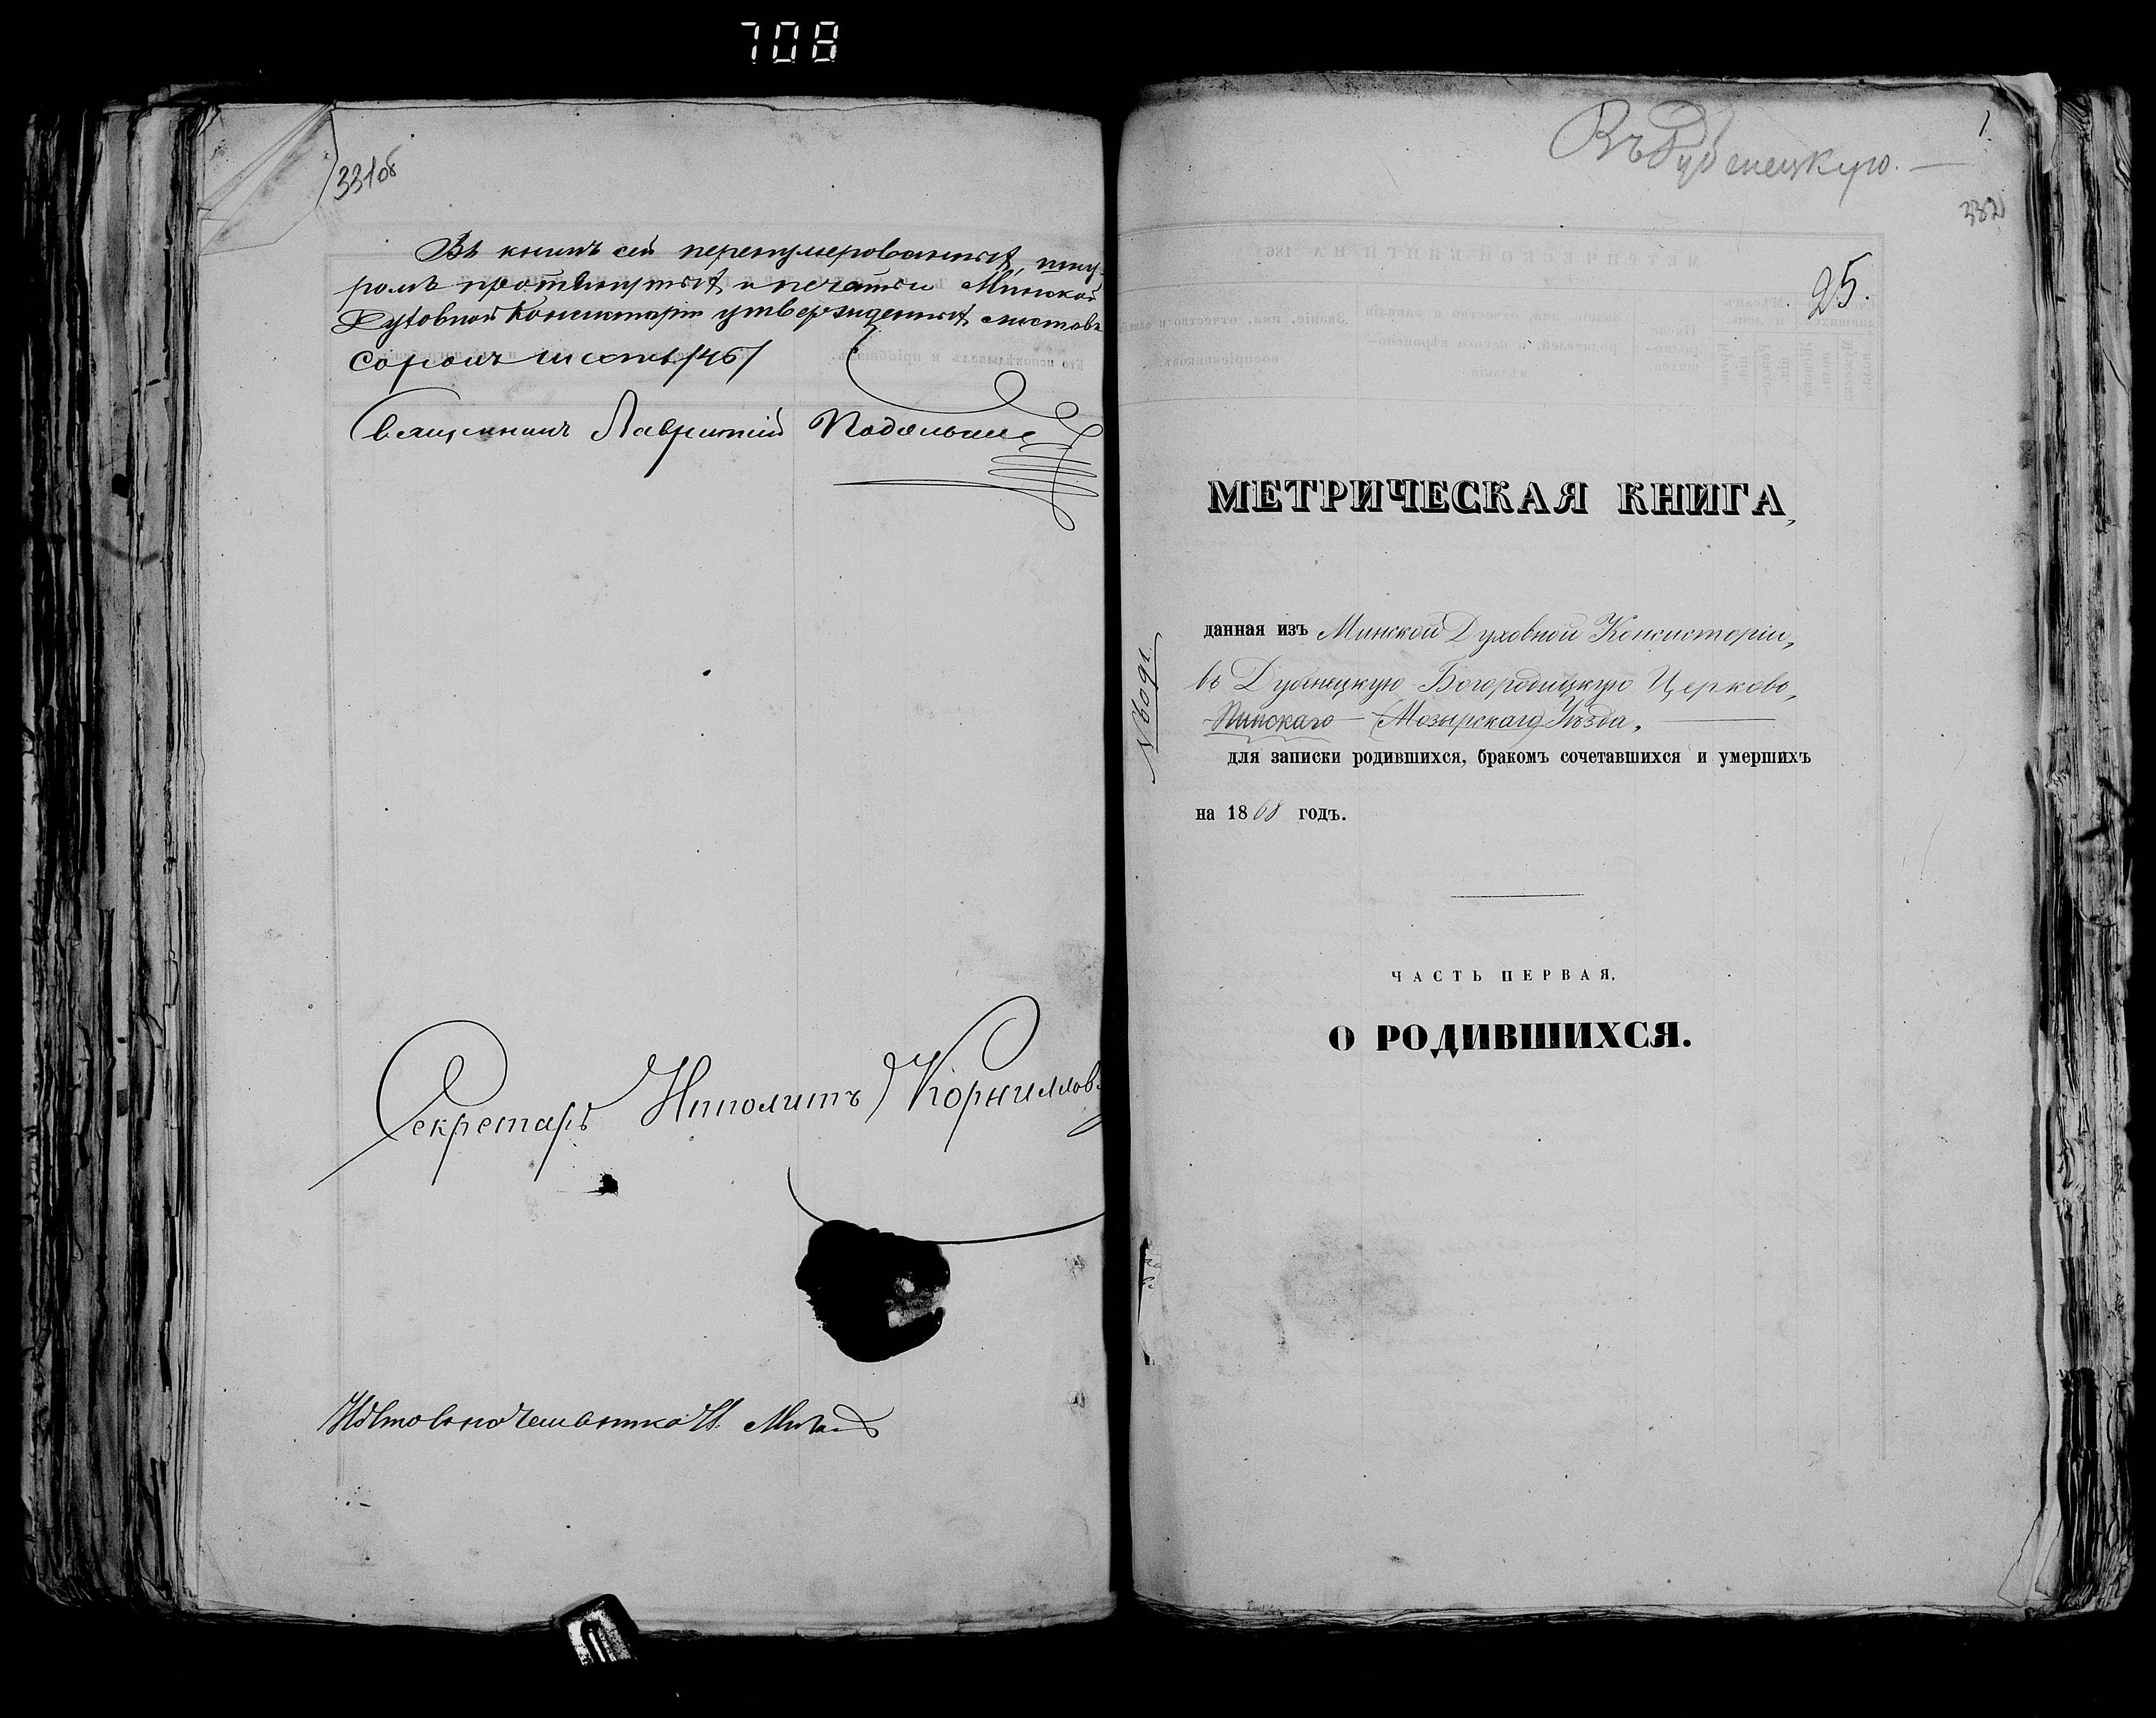 708
331об
Въ книгѣ сей перенумерованныхъ, шну-
ромъ протянутыхъ и печатью Минской
Духовной Консисторіи утвержденныхъ листовъ
сорокъ шесть /46/
Священникъ Лаврентій
Секретарь Иполитъ Корнилов
1
Въ Дубенецкую.
332
25.
МЕТРИЧЕСКАЯ КНИГА,
данная изъ Минской Духовной Консисторіи,
въ Дубенецкую Богородицкую Церковь,
Пинскаго Мозырскаго Уѣзда.
для записки родившихся, бракомъ сочетавшихся и умершихъ
на 1868 годъ.
ЧАСТЬ ПЕРВАЯ,
О РОДИВШИХСЯ.